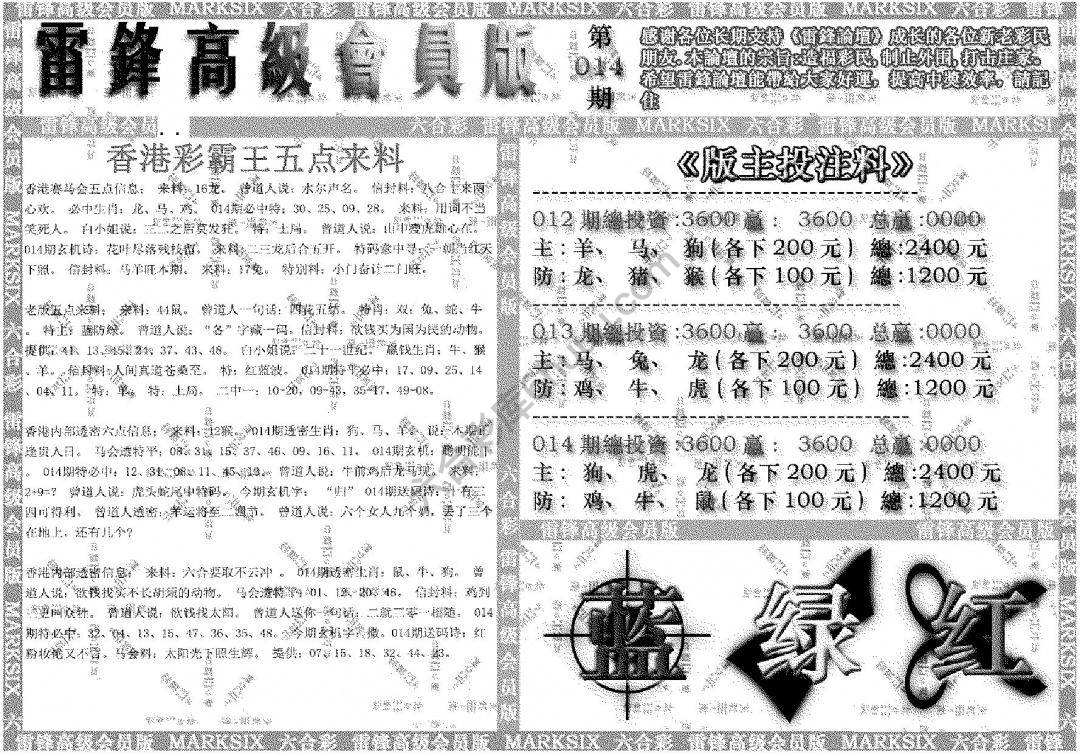 雷锋高级会员版 MARKSIX 六合彩 雷锋高级会员版 MARKSIX 六合彩 雷锋高级会员版 MARKSIX 六合彩
雷鋒高級會員版
第
014
期
感谢各位长期支持《雷鋒論壇》成长的各位新老彩民
朋友.本論壇的宗旨:造福彩民,制止外围,打击庄家.
希望雷鋒論壇能帶給大家好運，提高中獎效率，請記
住
雷锋高级会员
六合彩 雷锋高级会员版 MARKSIX 六合彩 雷锋高级会员版 MARKSI
香港彩霸王五点来料
香港赛马会五点信息： 来料：16龙。 曾道人说：水尔声名。 信封料：八合十来两
心欢。 必中生肖：龙、马、鸡。 014期必中特：30、25、09、28。 来料：用词不当
笑死人。 白小姐说：三二之后莫发死。 特：土局。 曾道人说：山中瘦虎雄心在。
014期玄机诗：花叶尽落残枝留。 来料：二三龙后合五开。 特码意中寻：一朝当红天
下照。 信封料：马羊旺本期。 来料：17兔。 特别料：小门奋计二门旺。
老版五点来料； 来料：44鼠。 曾道人一句话：四花五结。 特肖：双：兔、蛇、牛
。 特上：蓝防绿。 曾道人说：“各”字藏一码。信封料：欲钱买为国为民的动物。
提供：41、13、45、24、37、43、48。 白小姐说：二十一世纪。 赢钱生肖：牛、猴
、羊。 信封料：人间真道苍桑至。 特：红蓝波。 014期特平必中：17、09、25、14
、04、11。 特：单。 特：土局。 二中一：10-20、09-43、35-17、49-08。
香港内部透密六点信息： 来料：12猴。 014期透密生肖：狗、马、羊。 说：本期正
逢贵人日。 马会透特平：08、31、15、37、46、09、16、11。 014期玄机：聪明能干
。 014期特必中：12、31、08、11、45、13。 曾道人说：牛前鸡后龙马现。 来料：
2+9=？ 曾道人说：虎头蛇尾中特码。 今期玄机字： “归” 014期送码诗：十有三
四可得利。 曾道人透密：羊运将至二迥节。 曾道人说：六个女人九个妈，丢了三个
在地上，还有几个？
香港内部透密信息： 来料：六合要取不云冲 。 014期透密生肖：鼠、牛、狗。 曾
道人说：欲钱找买不长胡须的动物。 马会透特：01、12、20、46。 信封料：鸡到
三更叫众禽。 曾道人说：欲钱找太阳。 曾道人送你一句话：二就三零一相随。 014
期特必中：32、04、13、15、47、36、35、48。 今期玄机字：撒。014期送码诗：红
粉妆艳又不言。马会料：太阳光下照生辉。 提供：07、15、18、32、44、23。
《版主投注料》
012 期總投資:3600 赢： 3600 总赢:0000
主：羊、 马、 狗(各下200元) 總:2400元
防：龙、 猪、 猴(各下100元) 總:1200元
013 期總投資:3600 赢： 3600 总赢:0000
主：马、 兔、 龙(各下200元) 總:2400元
防：鸡、 牛、 虎(各下100元) 總:1200元
014 期總投資:3600 赢： 3600 总赢:0000
主：狗、 虎、 龙(各下200元) 總:2400元
防：鸡、 牛、 鼠(各下100元) 總:1200元
雷锋高级会员版 雷锋高级会员版
蓝 绿 红
雷锋高级会员版 MARKSIX 六合彩 雷锋高级会员版 MARKSIX 六合彩 雷锋高级会员版 MARKSIX 六合彩